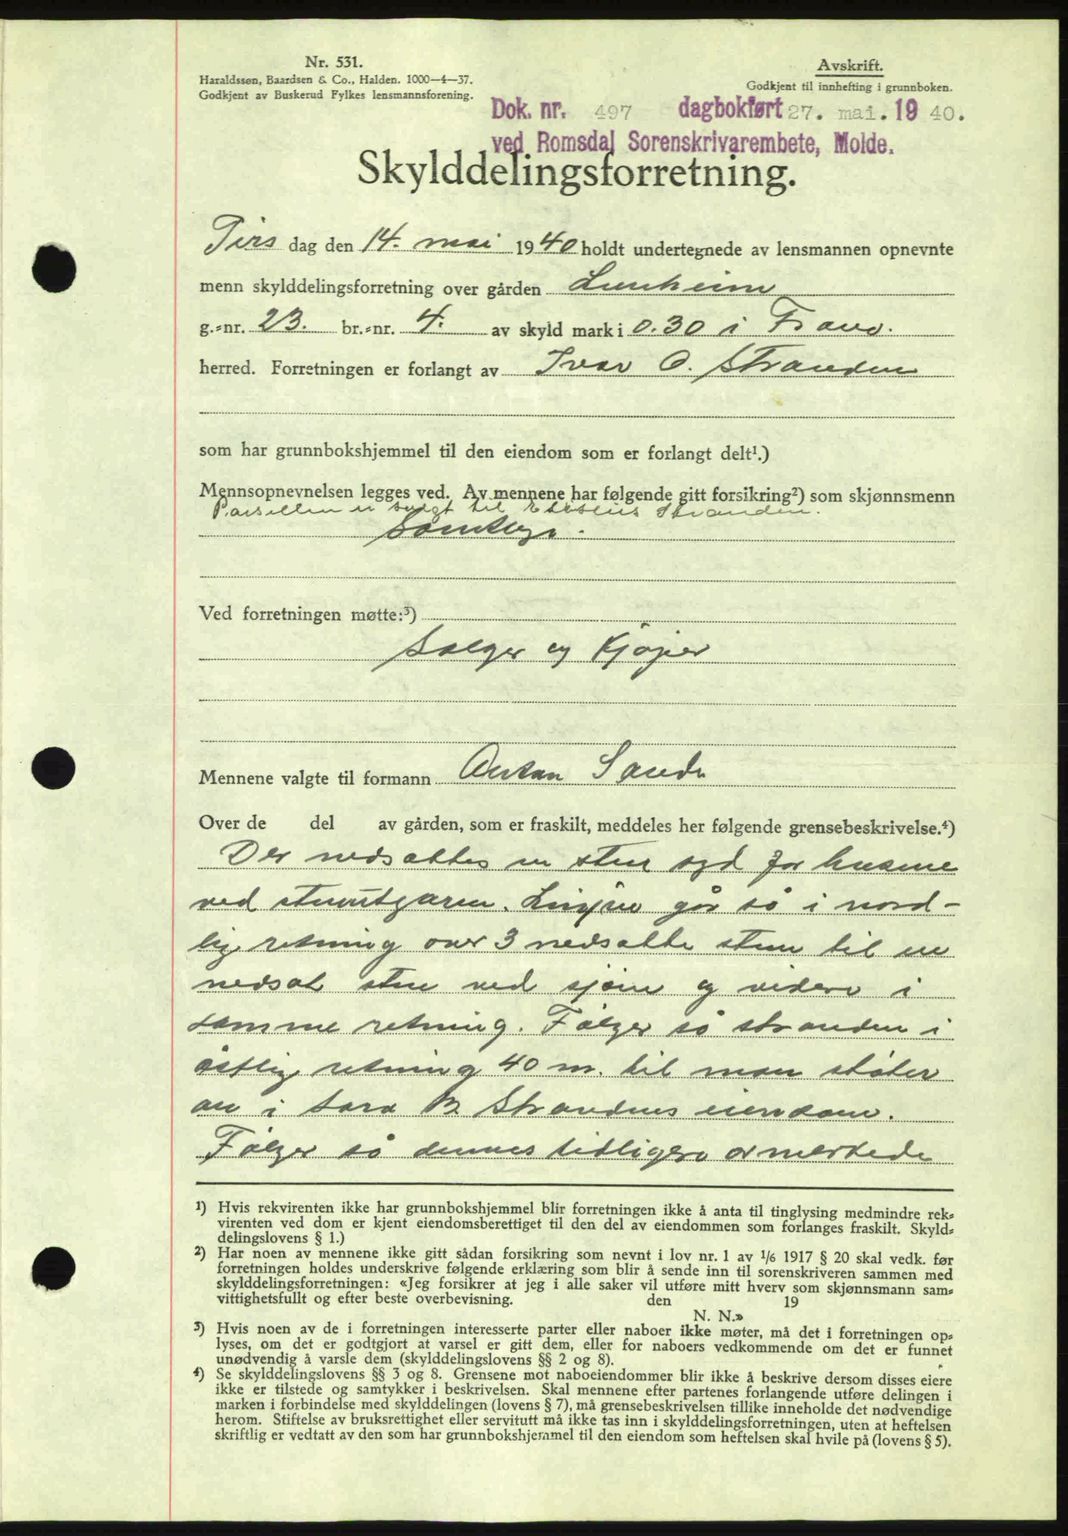 Nr. 531.
Haraldssøn, Baardsen & Co., Halden. 1000—4—37.
Godkjent av Buskerud Fylkes lensmannsforening.
Avskrift.
Godkjent til innhefting i grunnboken.
Dok. nr. 497 dagbokført 27. mai. 19 40.
ved Romsdal Sorenskrivarembete, Molde.
Skylddelingsforretning.
Tirs dag den 14. mai 1940 holdt undertegnede av lensmannen opnevnte
menn skylddelingsforretning over gården Lunheim
g.=nr. 23. br.=nr. 4. av skyld mark i 0.30 i Fræna.
herred. Forretningen er forlangt av Ivar O. Stranden
som har grunnbokshjemmel til den eiendom som er forlangt delt¹.)
Mennsopnevnelsen legges ved. Av mennene har følgende gitt forsikring²) som skjønnsmenn
Parsellen er solgt til Stranden.
Samtlige.
Ved forretningen møtte:³)
Sælger og Kjøper
Mennene valgte til formann Anton Sande
Over de del av gården, som er fraskilt, meddeles her følgende grensebeskrivelse.⁴)
Der nedsattes en sten syd for husene
ved stenutgaren. Linjen går så i nord-
lig retning over 3 nedsatte stene til en
nedsat sten ved sjøen og videre i
samme retning. Følger så stranden i
østlig retning 40 m. til man støter
an i Lars B. Strandens eiendom.
Følger så dennes tidligere opmerkede
¹) Hvis rekvirenten ikke har grunnbokshjemmel blir forretningen ikke å anta til tinglysing medmindre rek=
virenten ved dom er kjent eiendomsberettiget til den del av eiendommen som forlanges fraskilt. Skyld=
delingslovens § 1.)
²) Har noen av mennene ikke gitt sådan forsikring som nevnt i lov nr. 1 av ¹/₆ 1917 § 20 skal vedk. før
forretningen holdes underskrive følgende erklæring som blir å sende inn til sorenskriveren sammen med
skylddelingsforretningen: «Jeg forsikrer at jeg i alle saker vil utføre mitt hverv som skjønnsmann sam=
vittighetsfullt og efter beste overbevisning. den 19
N. N.»
³) Hvis noen av de i forretningen interesserte parter eller naboer ikke møter, må det i forretningen op=
lyses, om det er godtgjort at varsel er gitt dem, eller for naboers vedkommende om det er funnet
unødvendig å varsle dem (skylddelingslovens §§ 2 og 8).
⁴) Se skylddelingslovens §§ 3 og 8. Grensene mot naboeiendommer blir ikke å beskrive dersom disses eiere
ikke er tilstede og samtykker i beskrivelsen. Skal mennene efter partenes forlangende utføre delingen i
marken i forbindelse med skylddelingen (lovens § 7), må grensebeskrivelsen tillike inneholde det nødvendige
herom. Stiftelse av bruksrettighet eller servitutt må ikke tas inn i skylddelingsforretningen, uten at heftelsen
skriftlig er vedtatt av den som har grunnbokshjemmel til den eiendom som heftelsen skal hvile på (lovens § 5).